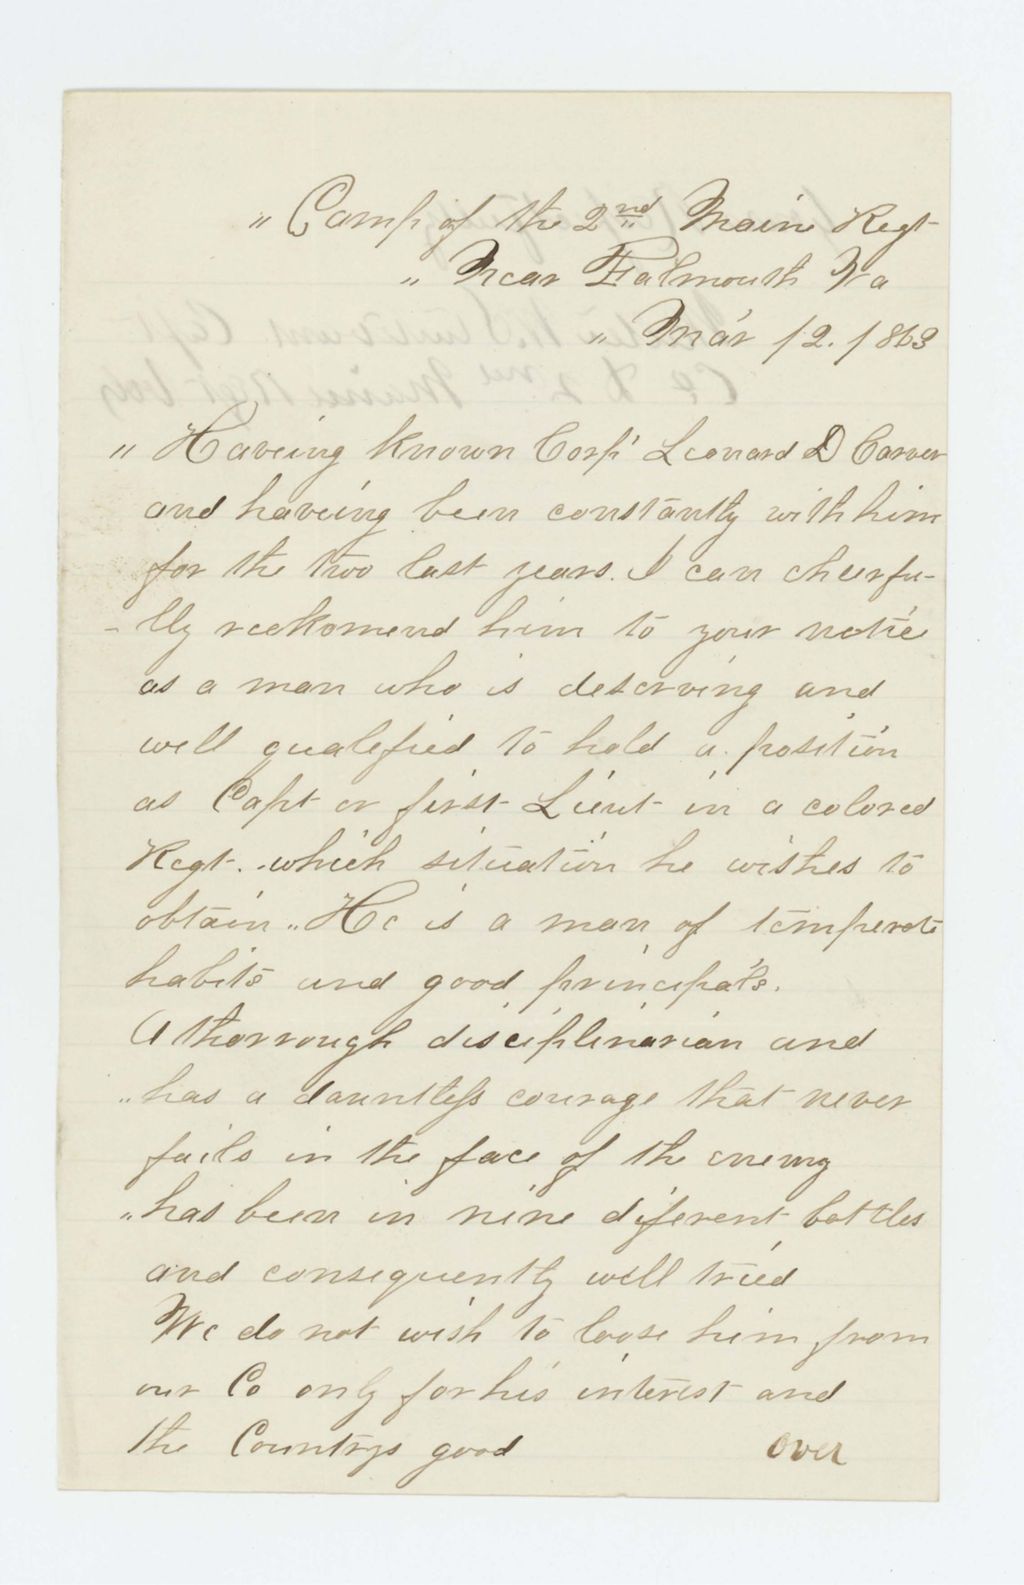 " Camp of the 2nd Maine Regt
" Near Falmouth Va
" Mar 12. 1863
" Haveing known Corp' Leonard D Carver
and haveing been constantly with him
for the two last years. I can cheerfu-
- lly reckomend him to your notice
as a man who is deserving and
well qualefied to hold a position
as Capt or first Lieut in a colored
Regt. which situation he wishes to
obtain " He is a man of temperate
habits and good principals.
A thorrough disciplinarian and
" has a dauntless courage that never
fails in the face of the enemy
" has been in nine diferent battles
and consequently well tried
We do not wish to loose him from
our Co only for his interest and
the Countrys good over